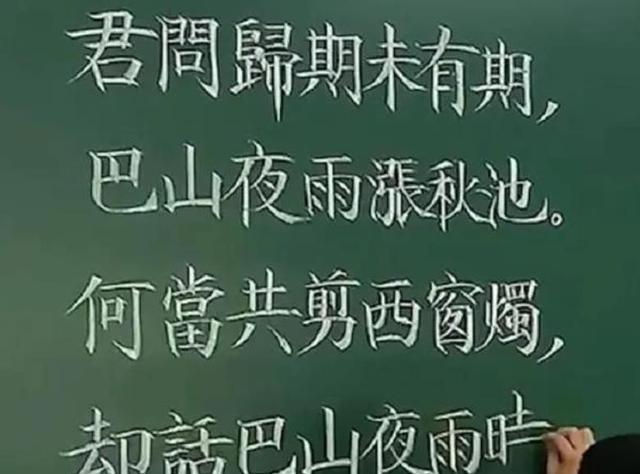 君問歸期未有期，
巴山夜雨漲秋池。
何當共剪西窗燭，
却話巴山夜雨時